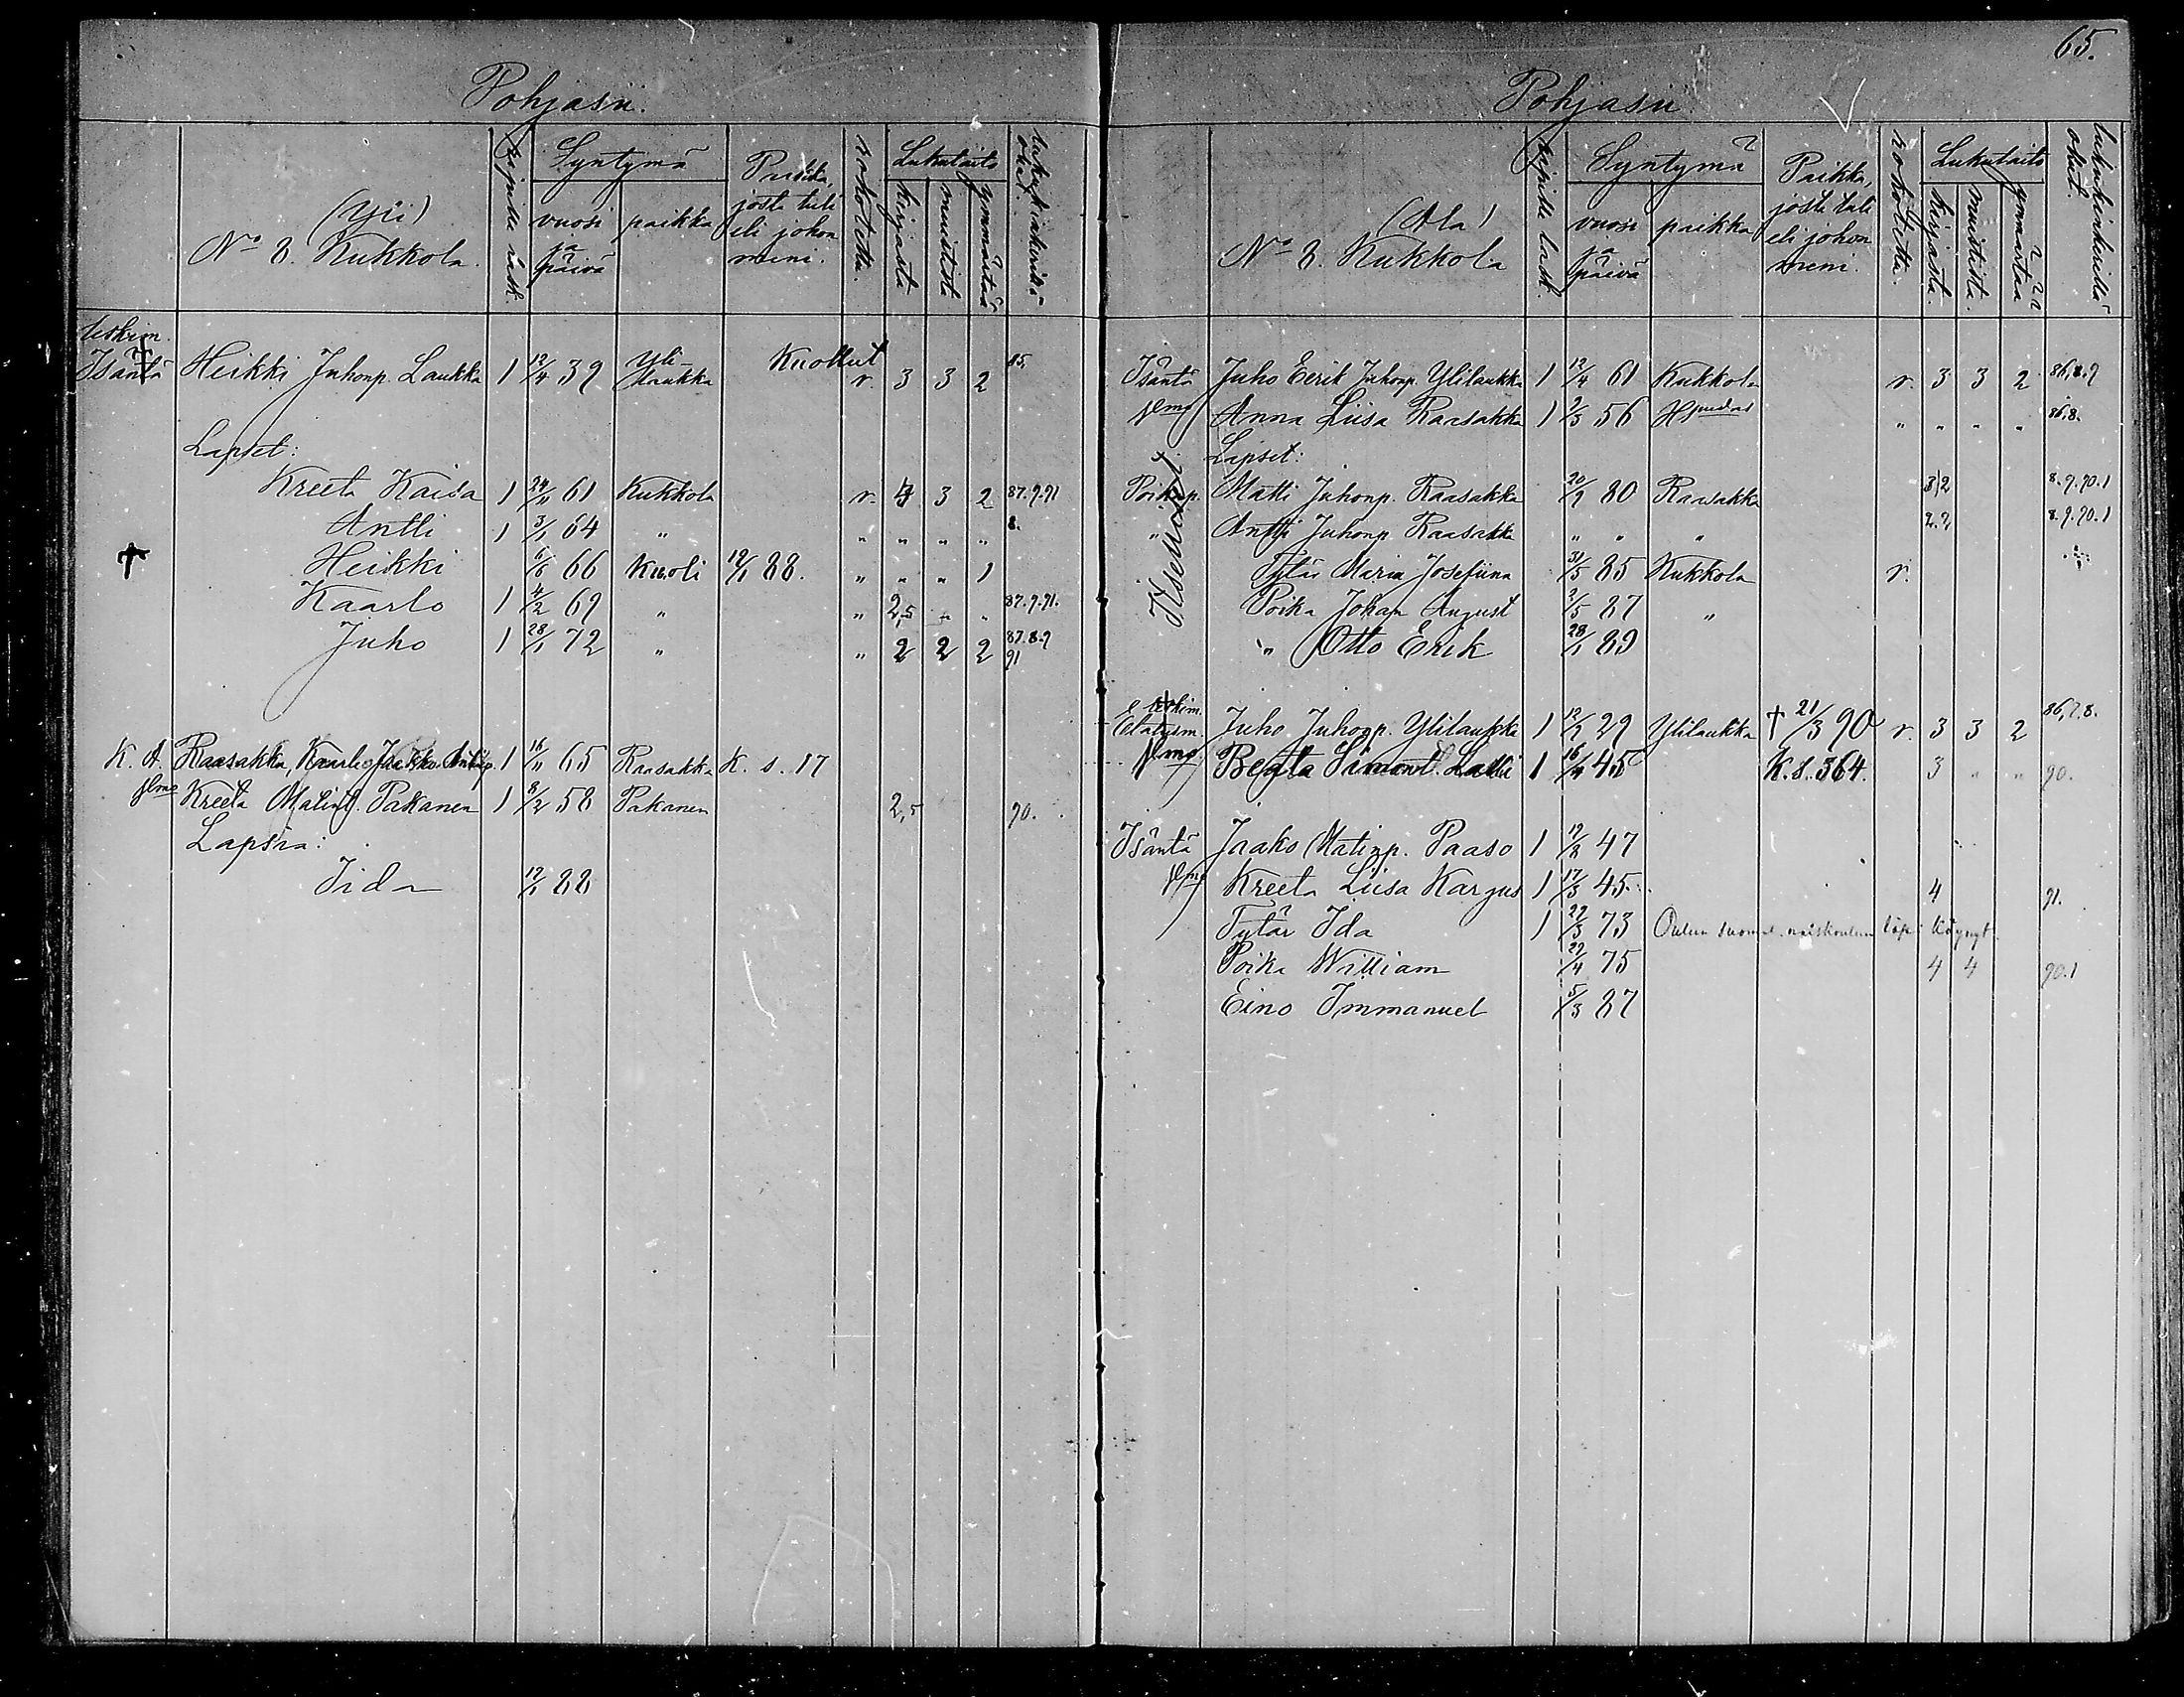 65.
Pohjasu.
(Yli)
No 8. Kukkola.
ripille lask.
Syntymä
vuosi ja päivä
paikka
Paikka, josta tuli eli johon meni.
rokotettu.
Lukutaito
kirjasta
muistista
ymmärtää
lukukinkerillä ollut.
Leskim.
Isäntä Heikki Juhonp. Laukka 1 12/4 39 Yli-Laukka Kuollut r. 3 3 2 85.
Lapset:
Kreeta Kaisa 1 24/11 61 Kukkola r. 4 3 2 87.9.91
Antti 1 3/1 64 " " " " " 8.
† Heikki 6/8 66 Kuoli 12/1 88. " " " 1
Kaarlo 1 4/2 69 " " 2,5 " " 87.9.91.
Juho 1 28/1 72 " " 2 2 2 87.8.9 91
K. A. Raasakka, Kaarlo Jaakko Antinp. 1 16/11 65 Raasakka K. s. 17
vmo Kreeta Matint. Pakanen 1 8/2 58 Pakanen 2,5 90.
Lapsia:
Iida 12/1 88
Pohjasu
(Ala)
No 8. Kukkola
ripille lask.
Syntymä
vuosi ja päivä
paikka
Paikka, josta tuli eli johon meni.
rokotettu.
Lukutaito
kirjasta.
muistista.
ymmärtää
lukukinkerillä ollut.
Isäntä Juho Eerik Juhonp. Ylilaukka 1 12/4 61 Kukkola r. 3 3 2 86,8.9
vmo Anna Liisa Raasakka 1 2/3 56 Hjudas " " " " 86,8.
Lapset:
Itselliset
Poikap. Matti Juhonp. Raasakka 20/9 80 Raasakka 3/2 8.9.90.1
" Antti Juhonp. Raasakka " " " 2.2 8.9.90.1
Tytär Maria Josefiina 31/5 85 Kukkola r.
Poika Johan August 2/5 87 "
" Otto Erik 28/1 89
Leskim.
Elatusm. Juho Juhonp. Ylilaukka 1 12/1 29 Ylilaukka † 21/3 90 r. 3 3 2 86,7.8.
vmo Beata Simont. Lalli 1 16/4 45 K. s. 364. 3 " " 90.
Isäntä Jaako Matinp. Paaso 1 12/8 47
vmo Kreeta Liisa Karjus 1 17/3 45 4 91.
Tytär Ida 1 22/3 73 Oulun suomal. naiskoulun läpi käynyt
Poika William 29/4 75 4 4 90.1
Eino Immanuel 5/3 87